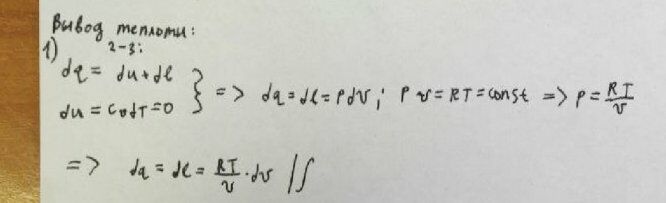 Вывод теплоты:
1) 2-3:
dq = du + dl
du = CvdT = 0 } => dq = dl = Pdv; Pv = RT = const => P = RT/v
=> dq = dl = RT/v · dv | ∫